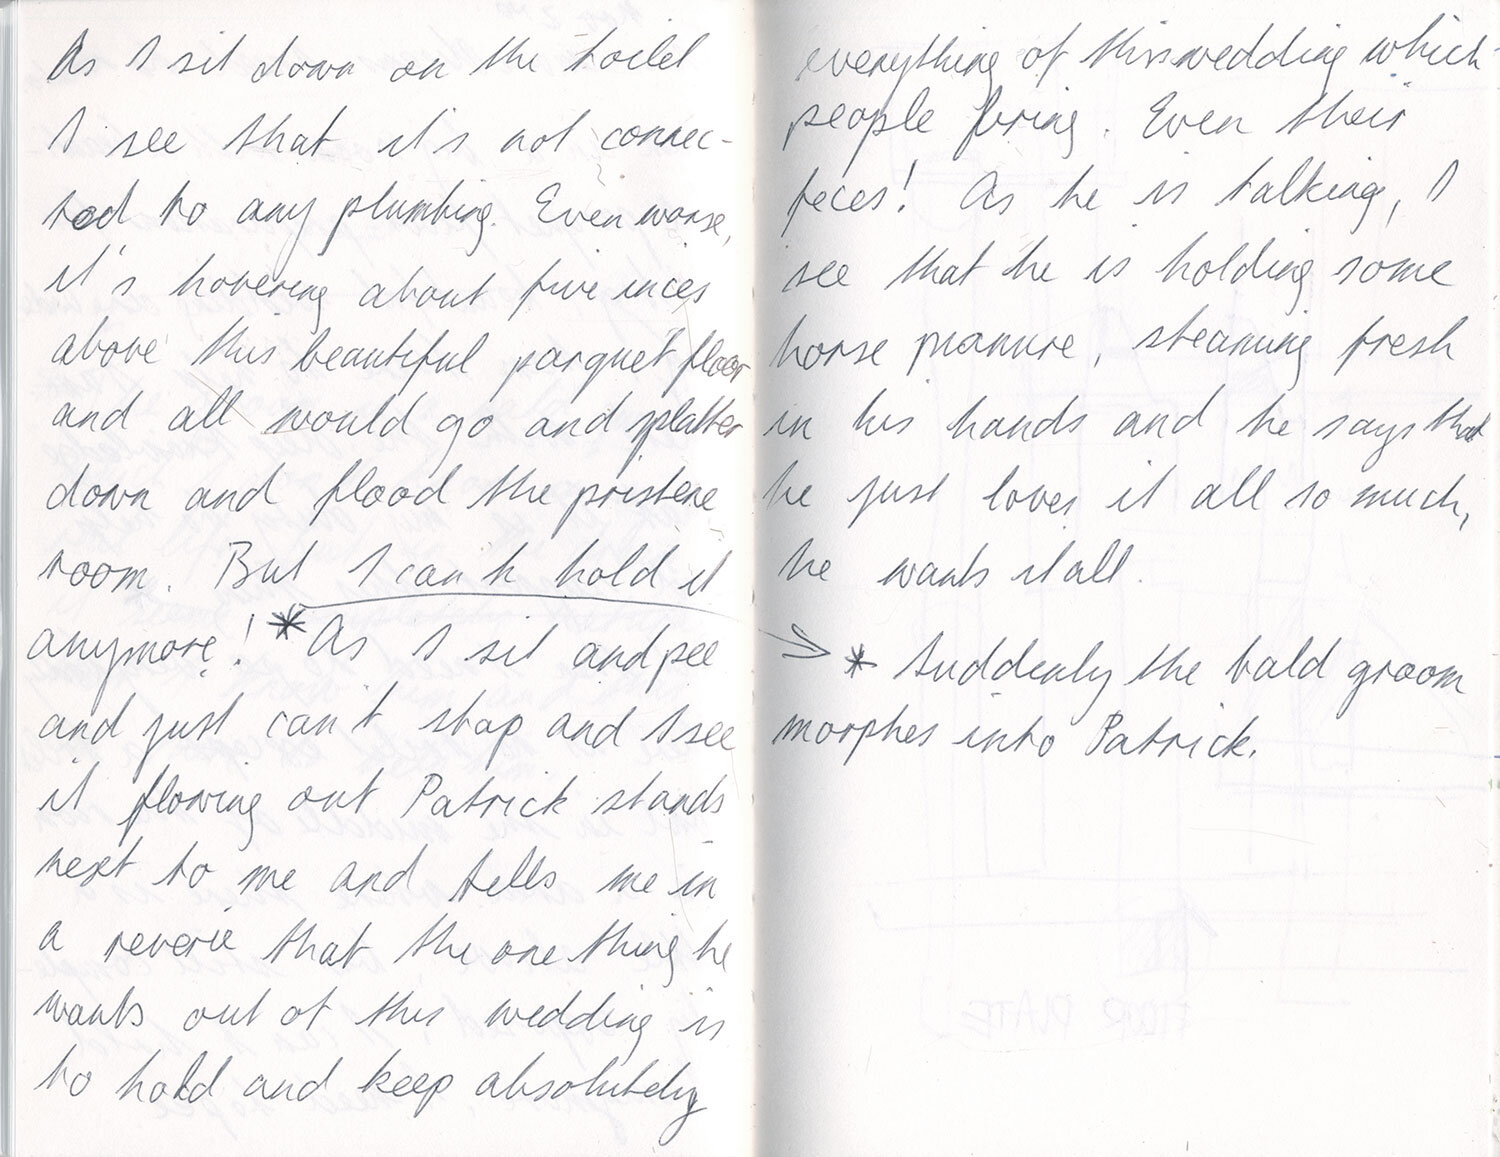 As I sit down on the toilet
I see that it's not connec-
ted to any plumbing. Even worse,
it's hovering about five inces
above this beautiful parquet floor
and all would go and splatter
down and flood the pristene
room. But I can't hold it
anymore! * As I sit and pee
and just can't stop and I see
it flowing out Patrick stands
next to me and tells me in
a reverie that the one thing he
wants out of this wedding is
to hold and keep absolutely
everything of this wedding which
people bring. Even their
feces! As he is talking, I
see that he is holding some
horse manure, steaming fresh
in his hands and he says that
he just loves it all so much,
he wants it all.
* Suddenly the bald groom
morphes into Patrick.